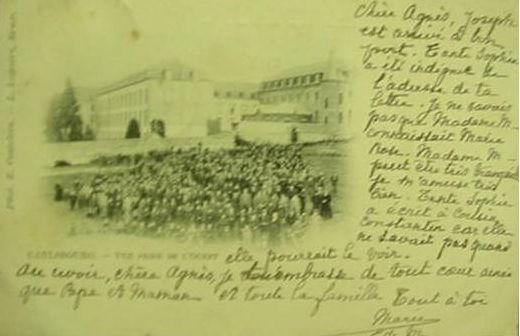 Chère Agnès, Joseph
est arrivé à bon
port. Tante Sophie
a été indignée de
l'adresse de ta
lettre. Je ne savais
pas que Madame M.
connaissait Marie
Rose. Madame M-
peut être très
Je m'amuse très
bien. Tante Sophie
a écrit à Cousin
Constantin car elle
ne savait pas quand
elle pourrait le voir.
CARLSBOURG. - VUE PRISE DE L'OUEST
Au revoir, chère Agnès, je de tout cœur ainsi
que Papa et Maman et toute la famille Tout à toi
Marie